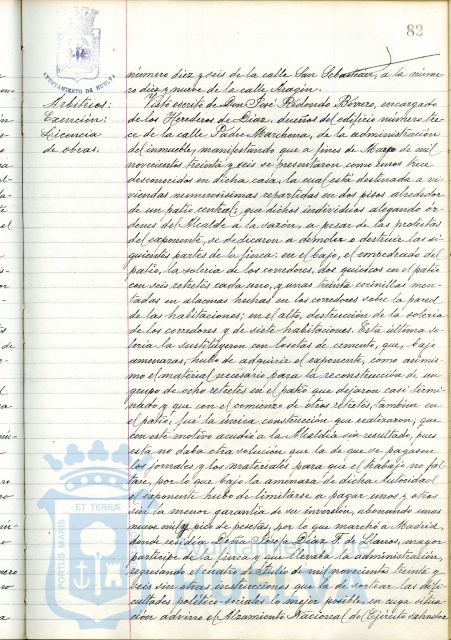 82
AYUNTAMIENTO DE HUELVA
número diez y seis de la calle San Sebastián, a la núme-
ro diez y nueve de la calle Aragón.
Arbitrios:
Exención:
Licencia
de obras.
Visto escrito de Don José Redondo Borrero, encargado
de los Herederos de Diaz, dueños del edificio número tre-
ce de la calle Padre Marchena, de la administración
del inmueble, manifestando que a fines de Mayo de mil
novecientos treinta y seis se presentaron como unos trece
desconocidos en dicha casa, la cual está destinada a vi-
viendas numerosisimas repartidas en dos pisos alrededor
de un patio central; que dichos individuos alegando ór-
denes del Alcalde a la sazón, a pesar de las protestas
del exponente, se dedicaron a demoler o destruir las si-
guientes partes de la finca: en el bajo, el empedrado del
patio, la soleria de los corredores, dos quioscos en el patio
con seis retretes cada uno, y unas treinta cocinillas mon-
tadas en alacenas hechas en los corredores sobre la pared
de las habitaciones; en el alto, destrucción de la soleria
de los corredores y de siete habitaciones. Esta última so-
leria la sustituyeron con losetas de cemento, que, bajo
amenazas, hubo de adquirir el exponente, como asimis-
mo el material necesario para la reconstrucción de un
grupo de ocho retretes en el patio que dejaron casi termi-
nado y que con el comienzo de otros retretes, tambien en
el patio, fué la única construcción que realizaron; que
con este motivo acudió a la Alcaldia sin resultado, pues
esta no daba otra solución que la de que se pagasen
los jornales y los materiales para que el trabajo no fal-
tase, por lo que bajo la amenaza de dicha Autoridad
el exponente hubo de limitarse a pagar unos y otros
sin la menor garantia de su inversión, abonando unas
nueve mil y pico de pesetas, por lo que marchó a Madrid,
donde residia Doña Josefa Diaz F. de Llanos, mayor
participe de la finca y que llevaba la administración,
regresando el cuatro de Julio de mil novecientos treinta y
seis sin otras instrucciones que la de sortear las difi-
cultades politico-sociales lo mejor posible, en cuya situa-
ción advino el Alzamiento Nacional del Ejército salvador
PORTUS MARIS ET TERRAE